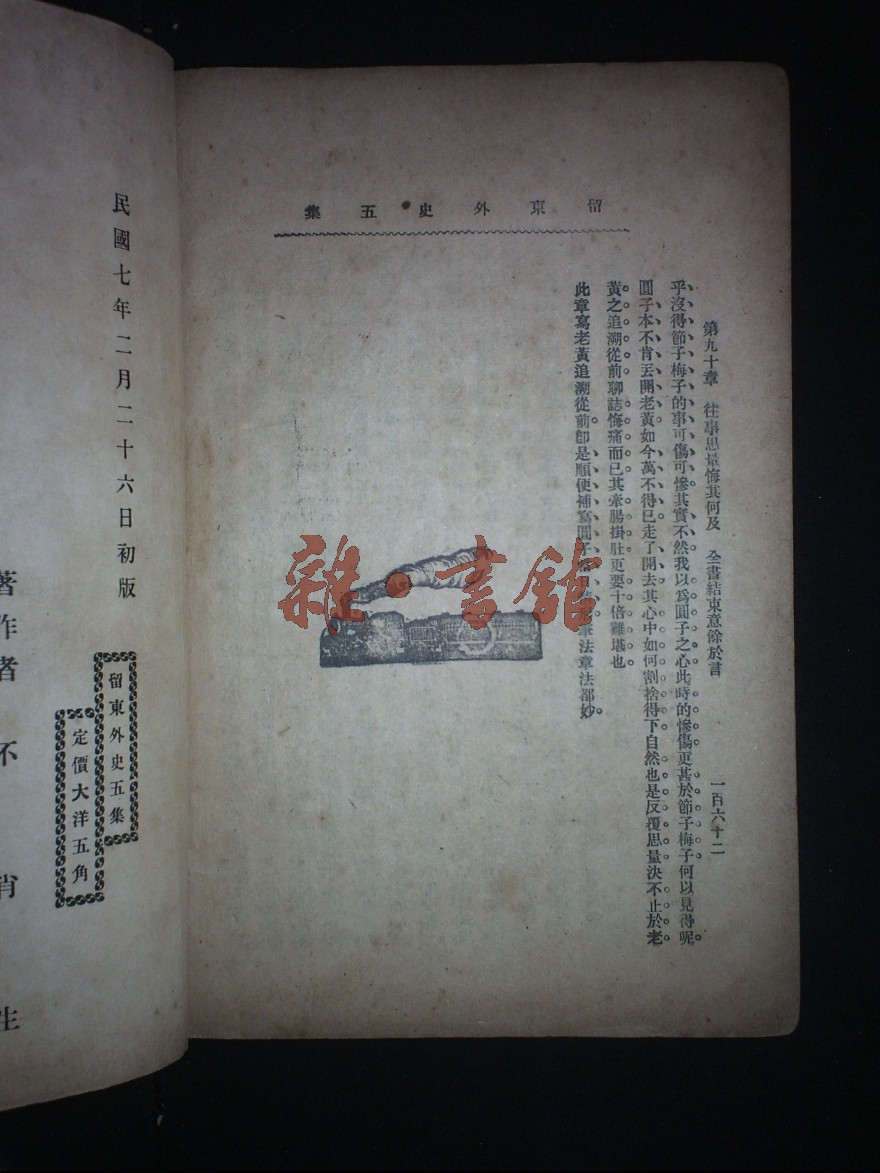 留東外史五集
第九十章 往事思量悔其何及 全書結束意餘於言 一百六十二
乎沒得節子梅子的事可傷可慘其實不然我以爲圓子之心此時的慘傷更甚於節子梅子何以見得呢
圓子本不肯丟開老黃如今萬不得已走了開去其心中如何割捨得下自然也是反覆思量決不止於老
黃之追溯從前聊誌悔痛而已其牽腸掛肚更要十倍難堪也
此章寫老黃追溯從前卽是順便補寫圓子 筆法章法都妙
雜·書館
民國七年二月二十六日初版
留東外史五集
定價大洋五角
著作者 不 肖 生